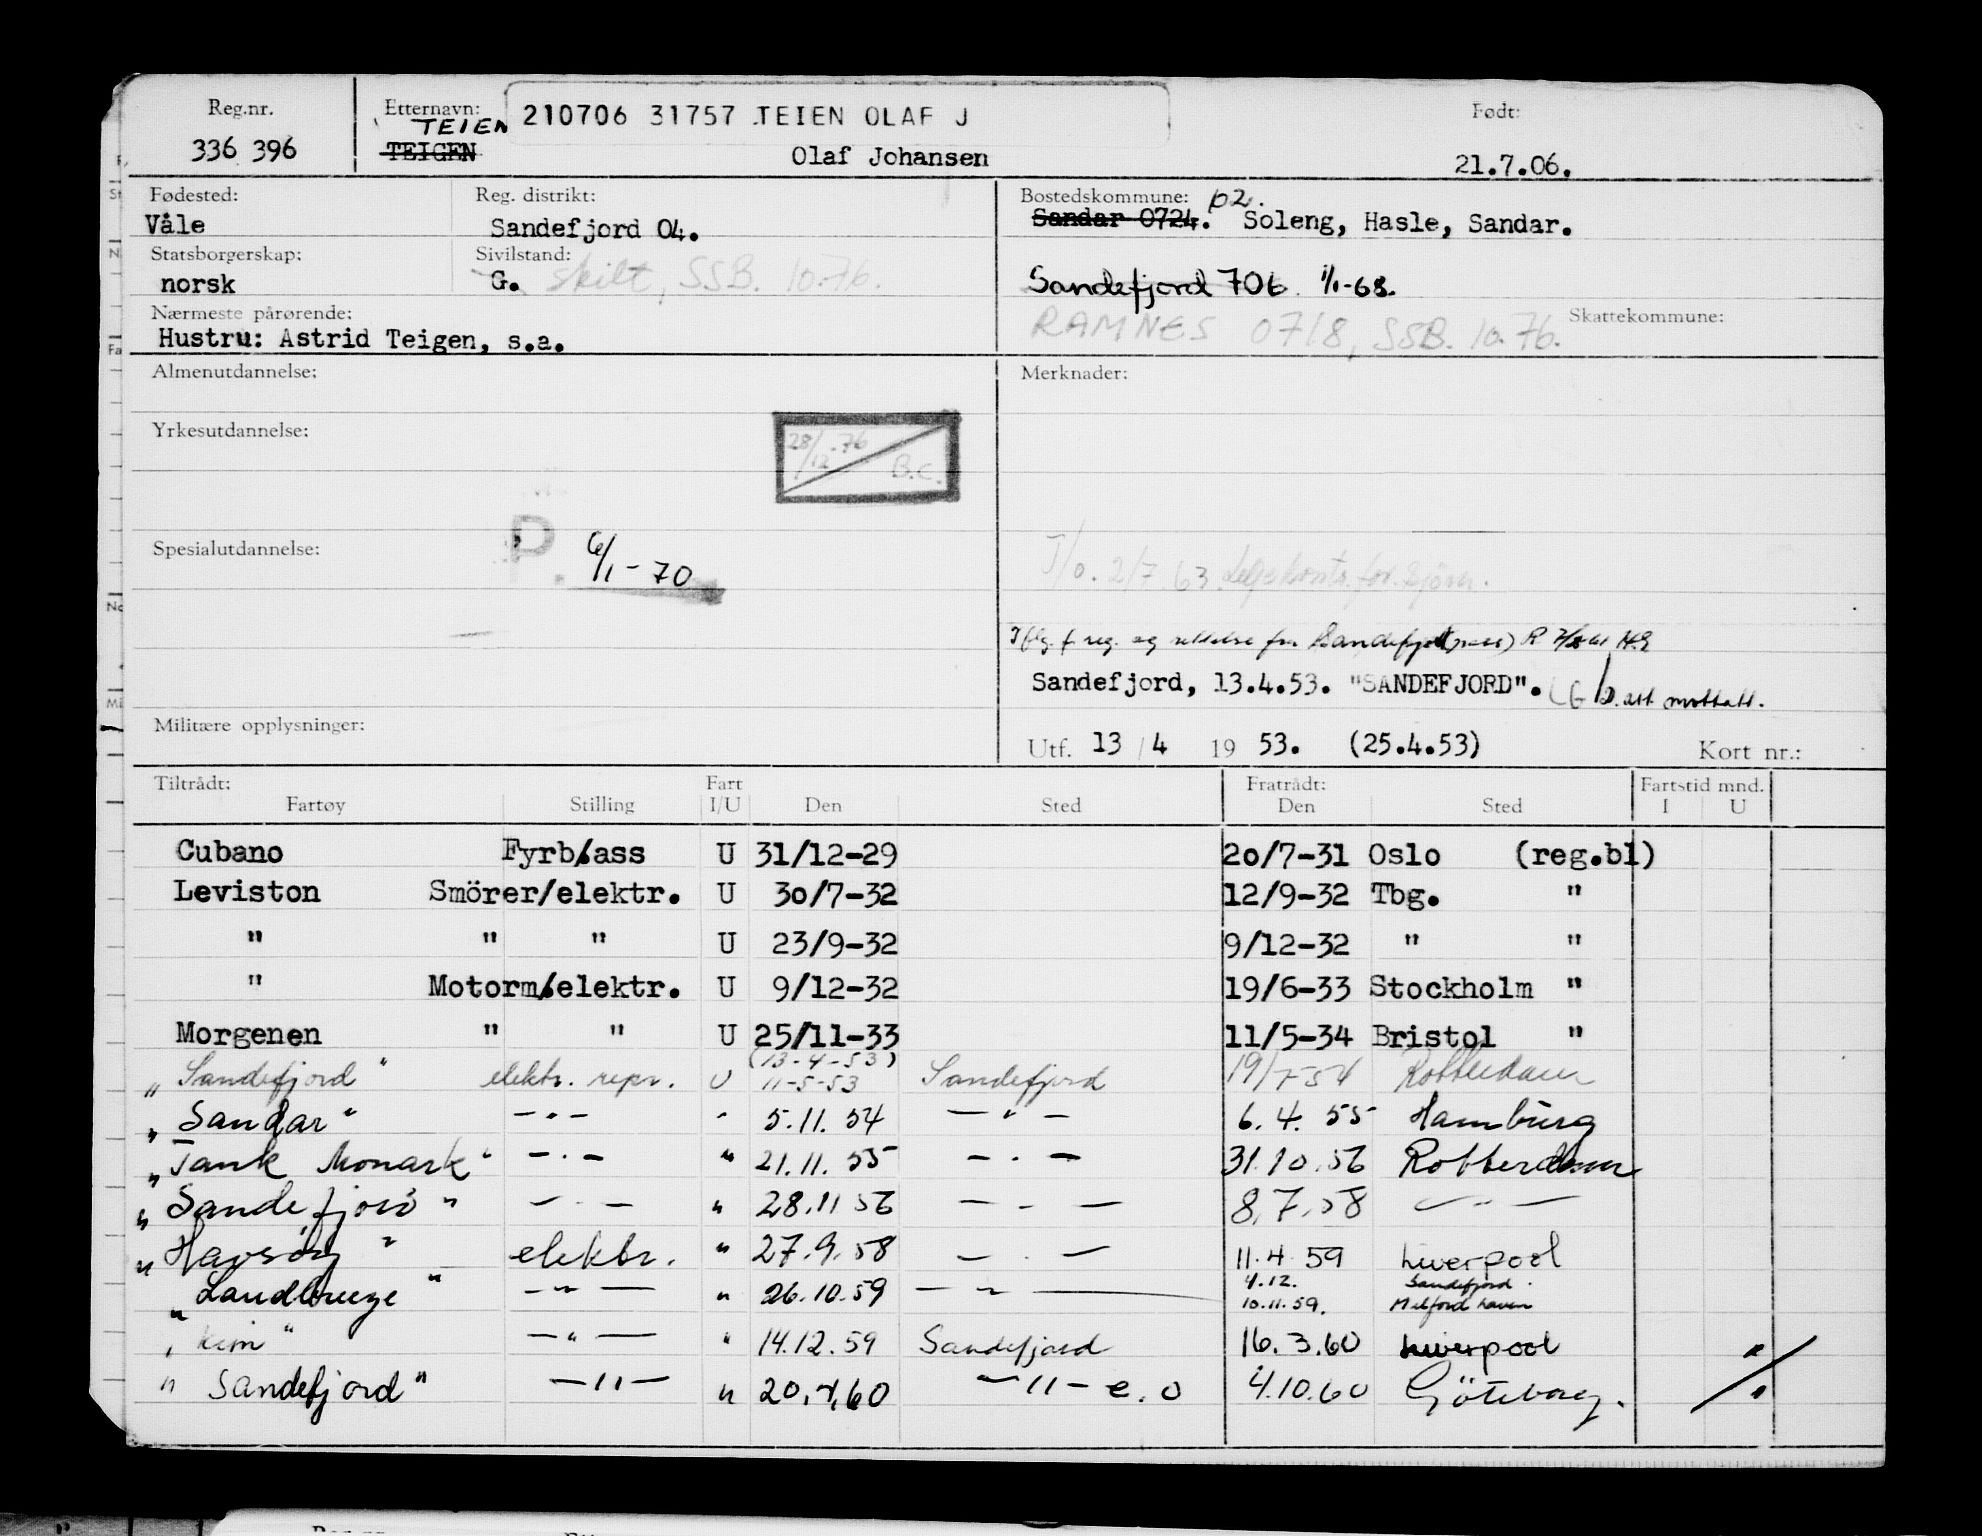 Reg.nr. Etternavn: 210706 31757 TEIEN OLAF J Født:
TEIEN
336 396 TEIGEN Olaf Johansen 21.7.06.
Fødested: Reg. distrikt: Bostedskommune:
Våle Sandefjord 04. Sandar 0724. Soleng, Hasle, Sandar.
Statsborgerskap: Sivilstand:
norsk G. skilt, SSB. 10.76. Sandefjord 706 1/1-68.
Nærmeste pårørende: RAMNES 0718, SSB. 10.76. Skattekommune:
Hustru: Astrid Teigen, s.a.
Almenutdannelse: Merknader:
Yrkesutdannelse: 28/12-76 B.C.
Spesialutdannelse: P. 6/1-70
T/o. 2/7 63
og rettelse fra Sandefjord
Sandefjord, 13.4.53. "SANDEFJORD". att mottatt.
Militære opplysninger:
Utf. 13/4 1953. (25.4.53) Kort nr.:
Tiltrådt: Fart Fratrådt: Fartstid mnd.
Fartøy Stilling I/U Den Sted Den Sted I U
Cubano Fyrb/ass U 31/12-29 20/7-31 Oslo (reg.bl)
Leviston Smörer/elektr. U 30/7-32 12/9-32 Tbg. "
" " " U 23/9-32 9/12-32 " "
" Motorm/elektr. U 9/12-32 19/6-33 Stockholm "
Morgenen " " U 25/11-33 11/5-34 Bristol "
(13-4-53)
"Sandefjord" elektr. repr. U 11-5-53 Sandefjord 19/7-54 Rotterdam
"Sandar" - " - " 5.11.54 - " - 6.4.55 Hamburg
"Tank Monark" - " - " 21.11.55 - " - 31.10.56 Rotterdam
"Sandefjord" - " - " 28.11.56 - " - 8.7.58 - " -
"Havsörg" elektr. " 27.9.58 - " - 11.4.59 Liverpool
4.12. Sandefjord.
"Landbreeze" - " - " 26.10.59 - " - 10.11.59. Milford haven
"Kim" - " - " 14.12.59 Sandefjord 16.3.60 Liverpool "
"Sandefjord" - " - " 20.4.60 - " - e.o 4.10.60 Göteborg. "